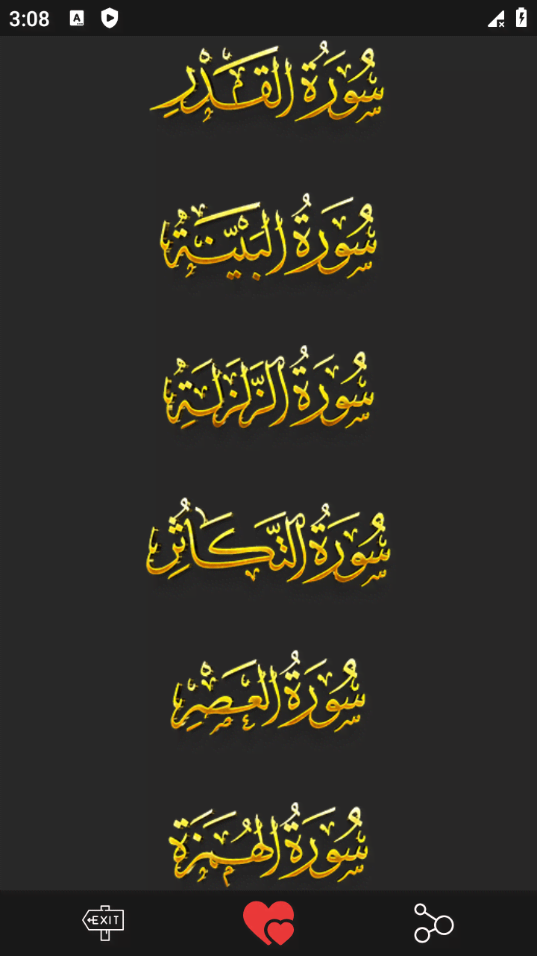 3:08
سُورَةُ القَدْرِ
سُورَةُ البَيِّنَةِ
سُورَةُ الزَّلْزَلَةِ
سُورَةُ التَّكَاثُرِ
سُورَةُ العَصْرِ
سُورَةُ الهُمَزَةِ
EXIT